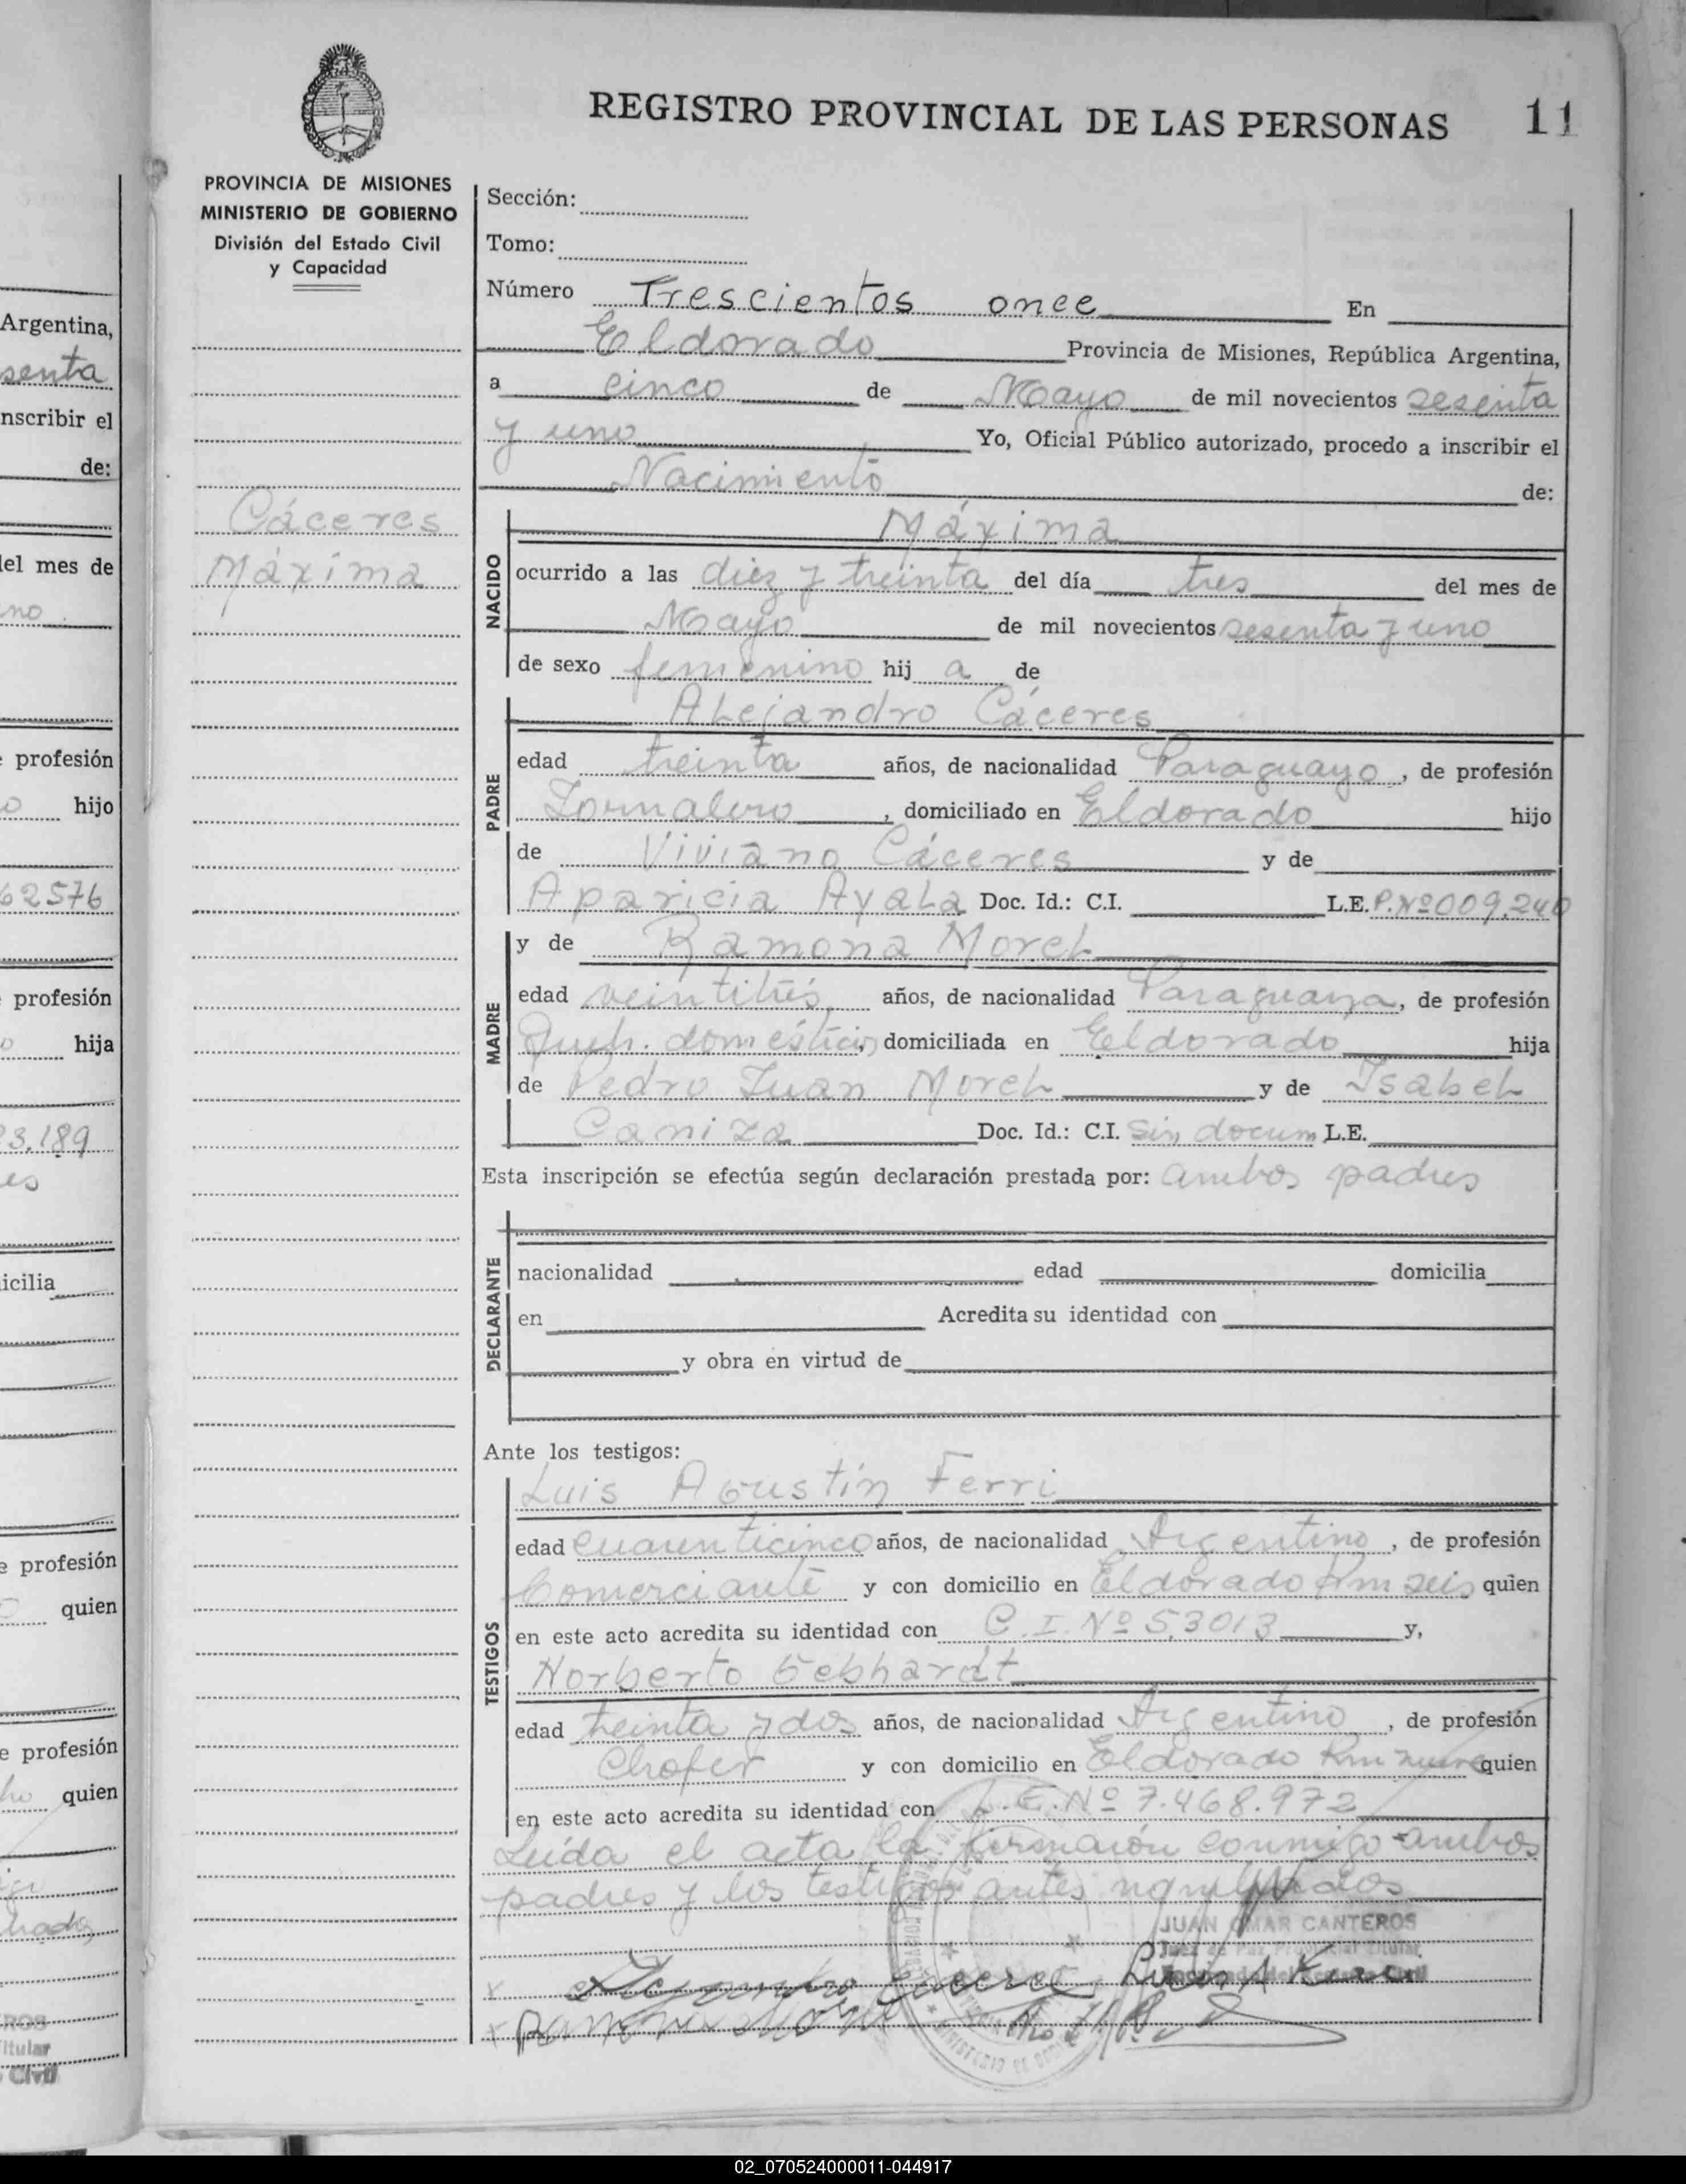 REGISTRO PROVINCIAL DE LAS PERSONAS 11
PROVINCIA DE MISIONES
MINISTERIO DE GOBIERNO
División del Estado Civil
y Capacidad
Cáceres
Máxima
Sección:
Tomo:
Número Trescientos once En
Eldorado Provincia de Misiones, República Argentina,
a cinco de Mayo de mil novecientos sesenta
y uno Yo, Oficial Público autorizado, procedo a inscribir el
Nacimiento de:
NACIDO
Máxima
ocurrido a las diez y treinta del día tres del mes de
Mayo de mil novecientos sesenta y uno
de sexo femenino hij a de
PADRE
Alejandro Cáceres
edad treinta años, de nacionalidad Paraguayo, de profesión
Jornalero, domiciliado en Eldorado hijo
de Viviano Cáceres y de
Aparicia Ayala Doc. Id.: C.I. L.E. P. Nº 009.240
MADRE
y de Ramona Morel
edad veintitrés años, de nacionalidad Paraguaya, de profesión
Queh. domésticos, domiciliada en Eldorado hija
de Pedro Juan Morel y de Isabel
Caniza Doc. Id.: C.I. Sin docum L.E.
Esta inscripción se efectúa según declaración prestada por: ambos padres
DECLARANTE
nacionalidad edad domicilia
en Acredita su identidad con
y obra en virtud de
Ante los testigos:
TESTIGOS
Luis Agustín Ferri
edad cuarenticinco años, de nacionalidad Argentino, de profesión
Comerciante y con domicilio en Eldorado Km seis quien
en este acto acredita su identidad con C.I. Nº 53013 y,
Norberto Gebhardt
edad treinta y dos años, de nacionalidad Argentino, de profesión
Chofer y con domicilio en Eldorado Km nueve quien
en este acto acredita su identidad con L.E. Nº 7.468.972
Leída el acta la firmarón conmigo ambos
padres y los testigos antes nombrados
JUAN OMAR CANTEROS
Juez de Paz Provincial Titular
Encargado del Registro Civil
Argentina,
senta
nscribir el
de:
del mes de
no
profesión
hijo
62576
profesión
hija
3,189
es
icilia
e profesión
quien
e profesión
quien
ROS
Titular
Civil
02_070524000011-044917